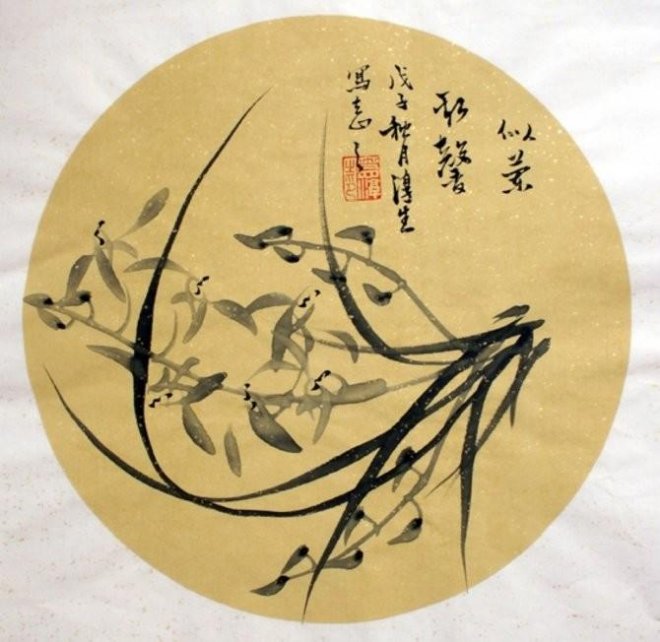 似蘭
斯馨
戊子秋月淳生
寫